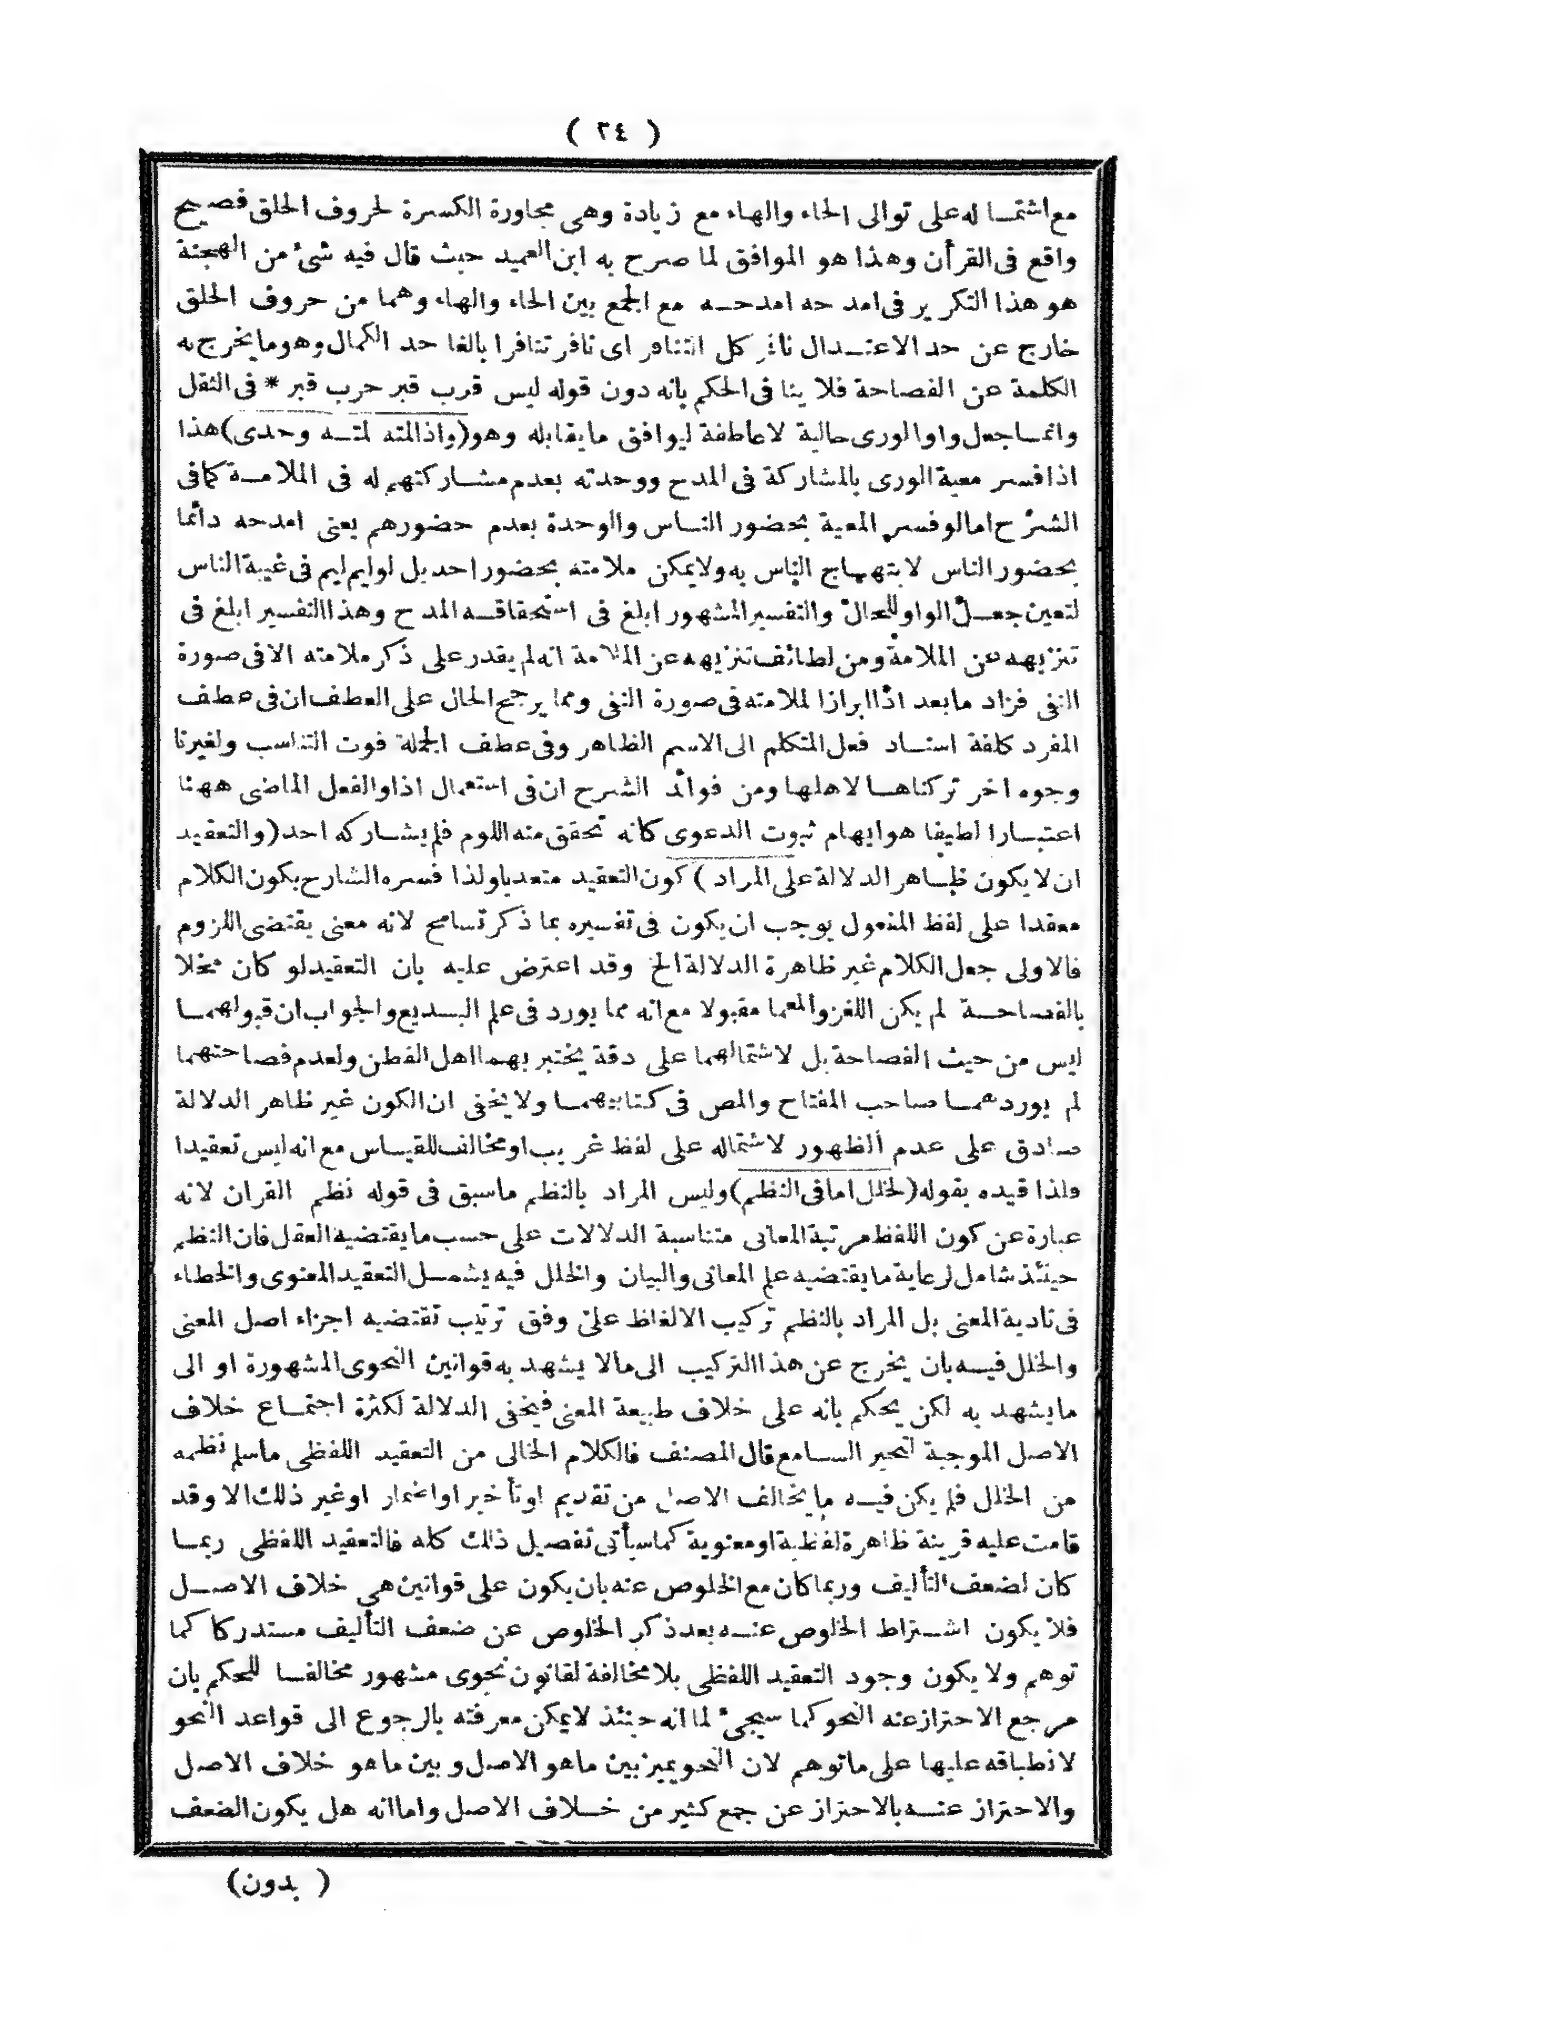 ( ٢٤ )
مع اشتماله على توالى الحاء والهاء مع زيادة وهى مجاورة الكسرة لحروف الحلق فصيح
واقع فى القرأن وهذا هو الموافق لما صرح به ابن العميد حيث قال فيه شئ من الهجنة
هو هذا التكرير فى امدحه امدحه مع الجمع بين الحاء والهاء وهما من حروف الحلق
خارج عن حد الاعتدال نافر كل التنافر اى نافر تنافرا بالغا حد الكمال وهو ما يخرج به
الكلمة عن الفصاحة فلا ينافى الحكم بانه دون قوله ليس قرب قبر حرب قبر * فى الثقل
وانما جعل واو الورى حالية لا عاطفة ليوافق ما يقابله وهو (واذا لمته لمته وحدى) هذا
اذا فسر معية الورى بالمشاركة فى المدح ووحدته بعدم مشاركتهم له فى الملامة كما فى
الشرح اما لو فسر المعية بحضور الناس والوحدة بعدم حضورهم يعنى امدحه دائما
بحضور الناس لابتهاج الناس به ولا يمكن ملامته بحضور احد بل لو ايم ليم فى غيبة الناس
لتعين جعل الواو للحال والتفسير المشهور ابلغ فى استحقاقه المدح وهذا التفسير ابلغ فى
تنزيهه عن الملامة ومن لطائف تنزيهه عن الملامة انه لم يقدر على ذكر ملامته الا فى صورة
النفى فزاد ما بعد اذا ابرازا لملامته فى صورة النفى ومما يرجح الحال على العطف ان فى عطف
المفرد كلفة اسناد فعل المتكلم الى الاسم الظاهر وفى عطف الجملة فوت التناسب ولغيرنا
وجوه اخر تركناها لاهلها ومن فوائد الشرح ان فى استعمال اذا والفعل الماضى ههنا
اعتبارا لطيفا هو ايهام ثبوت الدعوى كانه تحقق منه اللوم فلم يشاركه احد (والتعقيد
ان لا يكون ظاهر الدلالة على المراد) كون التعقيد متعديا ولذا فسره الشارح بكون الكلام
معقدا على لفظ المفعول يوجب ان يكون فى تفسيره بما ذكر تسامح لانه معنى يقتضى اللزوم
فالاولى جعل الكلام غير ظاهرة الدلالة الخ وقد اعترض عليه بان التعقيد لو كان مخلا
بالفصاحة لم يكن اللغز والمعما مقبولا مع انه مما يورد فى علم البديع والجواب ان قبولهما
ليس من حيث الفصاحة بل لاشتمالهما على دقة يختبر بهما اهل الفطن ولعدم فصاحتهما
لم يوردهما صاحب المفتاح والمص فى كتابيهما ولا يخفى ان الكون غير ظاهر الدلالة
صادق على عدم الظهور لاشتماله على لفظ غريب او مخالف للقياس مع انه ليس تعقيدا
ولذا قيده بقوله (لخلل اما فى النظم) وليس المراد بالنظم ما سبق فى قوله نظم القران لانه
عبارة عن كون اللفظ مرتبة المعانى متناسبة الدلالات على حسب ما يقتضيه العقل فان النظم
حينئذ شامل لرعاية ما يقتضيه علم المعانى والبيان والخلل فيه يشمل التعقيد المعنوى والخطاء
فى تادية المعنى بل المراد بالنظم تركيب الالفاظ على وفق ترتيب تقتضيه اجزاء اصل المعنى
والخلل فيه بان يخرج عن هذا التركيب الى ما لا يشهد به قوانين النحوى المشهورة او الى
ما يشهد به لكن يحكم بانه على خلاف طبيعة المعنى فيخفى الدلالة لكثرة اجتماع خلاف
الاصل الموجبة لتحير السامع قال المصنف فالكلام الخالى من التعقيد اللفظى ما سلم نظمه
من الخلل فلم يكن فيه ما يخالف الاصل من تقديم او تأخير او اضمار او غير ذلك الا وقد
قامت عليه قرينة ظاهرة لفظية او معنوية كما سيأتى تفصيل ذلك كله فالتعقيد اللفظى ربما
كان لضعف التأليف وربما كان مع الخلوص عنه بان يكون على قوانين هى خلاف الاصل
فلا يكون اشتراط الخلوص عنه بعد ذكر الخلوص عن ضعف التأليف مستدركا كما
توهم ولا يكون وجود التعقيد اللفظى بلا مخالفة لقانون نحوى مشهور مخالفا للحكم بان
مرجع الاحتراز عنه النحو كما سيجىء لما انه حينئذ لا يمكن معرفته بالرجوع الى قواعد النحو
لانطباقه عليها على ما توهم لان النحو يميز بين ما هو الاصل وبين ما هو خلاف الاصل
والاحتراز عنه بالاحتراز عن جمع كثير من خلاف الاصل واما انه هل يكون الضعف
( بدون)